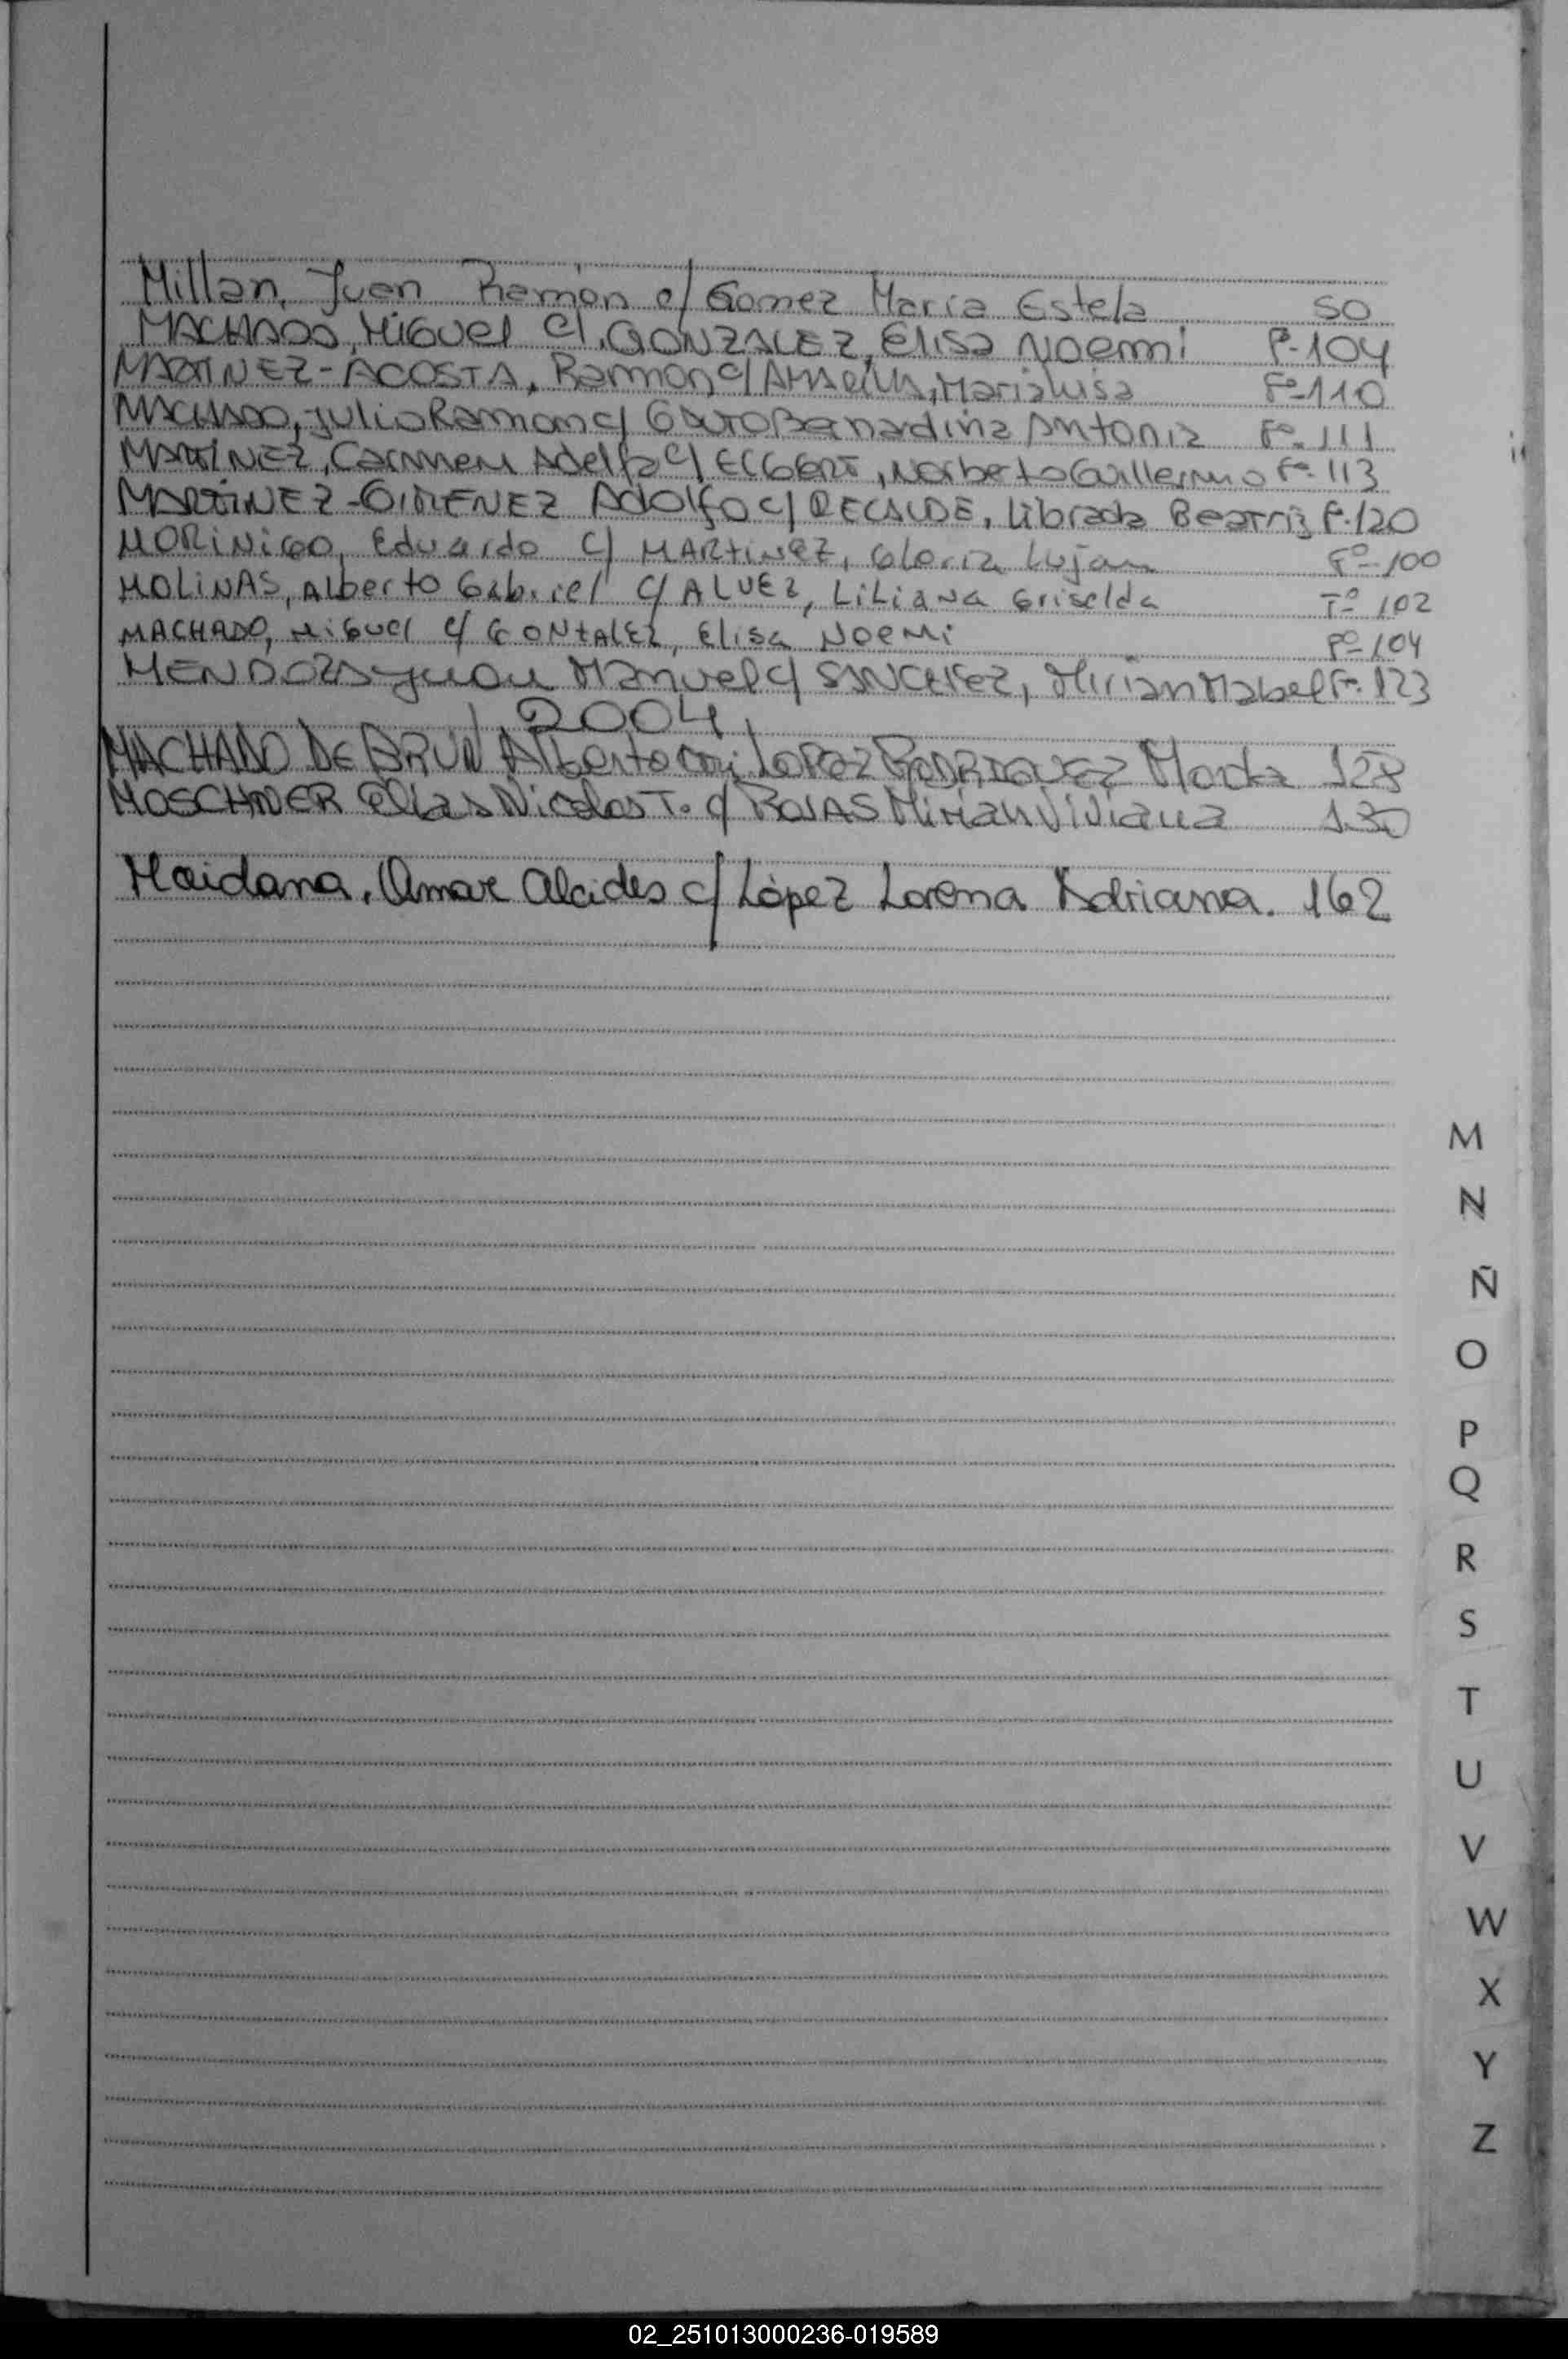 Millan, Juan Ramón c/ Gomez María Estela 50
MACHADO, Miguel c/. GONZALEZ, Elisa Noemi Fº-104
MARTINEZ-ACOSTA, Ramon c/ Maria Luisa Fº-110
MACHADO, Julio Ramon c/ Bernardina Antonia Fº-111
MARTINEZ, Carmen Adelfa c/ , Norberto Guillermo Fº-113
MARTINEZ-GIMENEZ Adolfo c/ RECALDE, Librada Beatriz Fº-120
MORINIGO, Eduardo c/ MARTINEZ, Gloria Lujan Fº-100
MOLINAS, Alberto Gabriel c/ ALVEZ, Liliana Griselda Fº 102
MACHADO, Miguel c/ GONZALEZ, Elisa Noemi Fº-104
MENDOZA, Juan Manuel c/ SANCHEZ, Mirian Mabel Fº-123
2004
MACHADO DE BRUN Alberto con LOPEZ RODRIGUEZ Marta 128
MOSCHNER Elias Nicolas T. c/ ROJAS Mirian Viviana 130
Maidana, Omar Alcides c/ López Lorena Adriana. 162
M
N
Ñ
O
P
Q
R
S
T
U
V
W
X
Y
Z
02_251013000236-019589